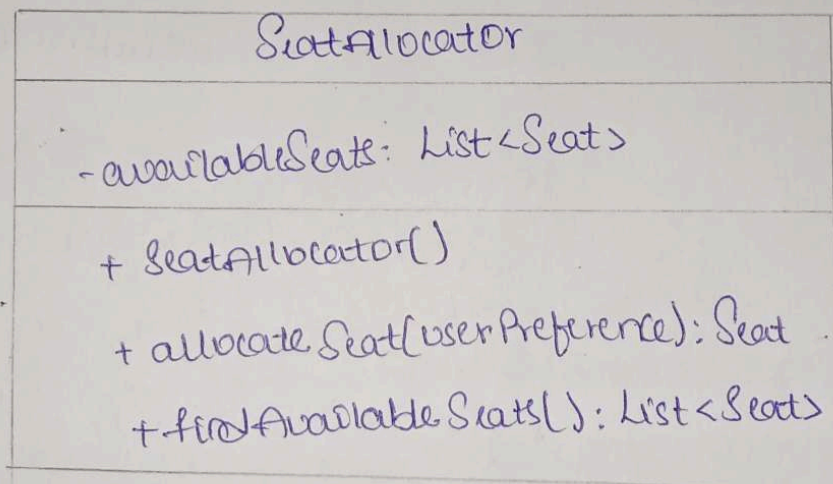 SeatAllocator
- availableSeats: List<Seat>
+ SeatAllocator()
+ allocateSeat(userPreference): Seat
+ findAvailableSeats(): List<Seat>